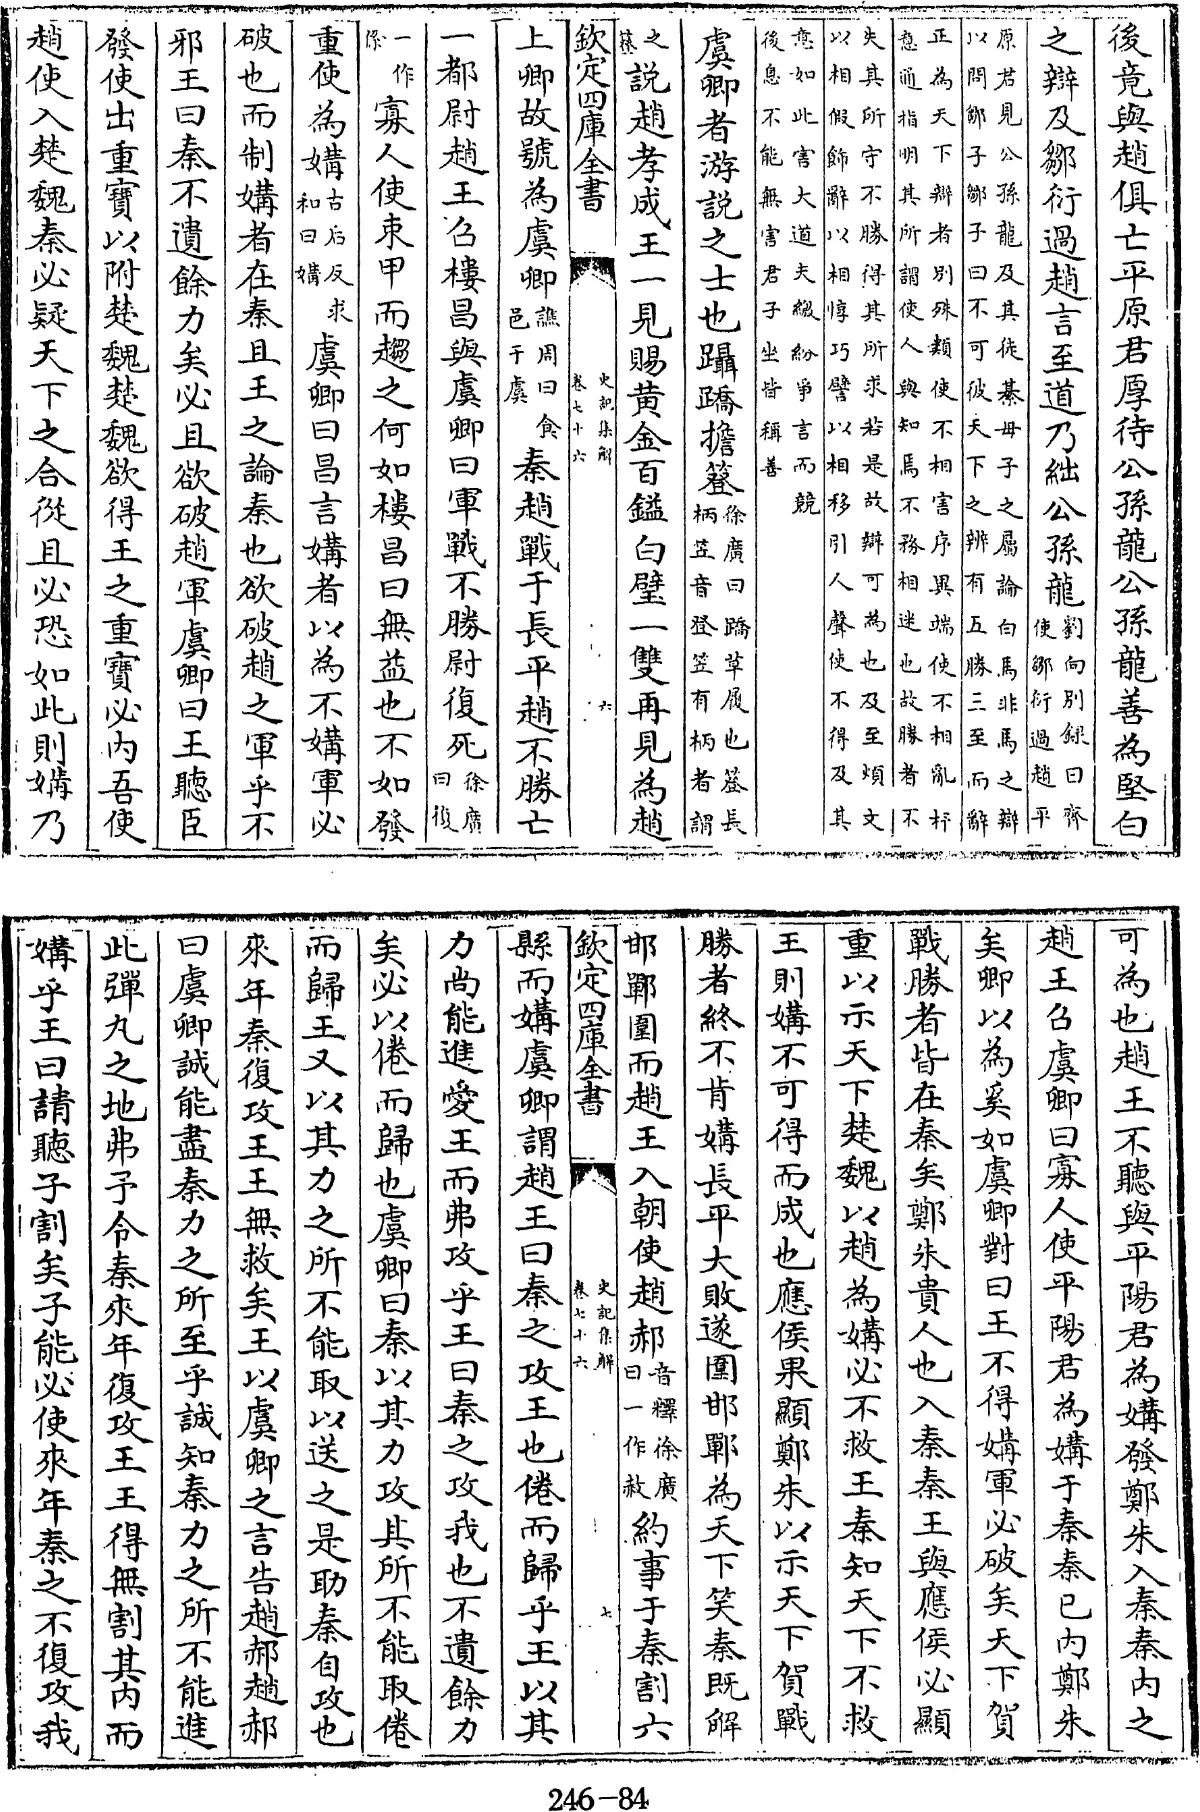 後竟與趙俱亡平原君厚待公孫龍公孫龍善為堅白
之辯及鄒衍過趙言至道乃絀公孫龍劉向別録曰齊使鄒衍過趙平
原君見公孫龍及其徒綦毋子之屬論白馬非馬之辯
以問鄒子鄒子曰不可彼天下之辨有五勝三至而辭
正為天下辯者别殊類使不相害序異端使不相亂杼
意通指明其所謂使人與知焉不務相迷也故勝者不
失其所守不勝得其所求若是故辯可為也及至煩文
以相假飾辭以相惇巧譬以相移引人聲使不得及其
意如此害大道夫繳紛爭言而競
後息不能無害君子坐皆稱善
虞卿者游說之士也躡蹻擔簦徐廣曰蹻草履也簦長柄笠音登笠有柄者謂
之簦說趙孝成王一見賜黃金百鎰白璧一雙再見為趙
欽定四庫全書
史記集解
卷七十六
六
上卿故號為虞卿譙周曰食邑于虞秦趙戰于長平趙不勝亡
一都尉趙王召樓昌與虞卿曰軍戰不勝尉復死徐廣曰復
一作係寡人使束甲而趨之何如樓昌曰無益也不如發
重使為媾古后反求和曰媾虞卿曰昌言媾者以為不媾軍必
破也而制媾者在秦且王之論秦也欲破趙之軍乎不
邪王曰秦不遺餘力矣必且欲破趙軍虞卿曰王聽臣
發使出重寶以附楚魏楚魏欲得王之重寶必內吾使
趙使入楚魏秦必疑天下之合從且必恐如此則媾乃
可為也趙王不聽與平陽君為媾發鄭朱入秦秦內之
趙王召虞卿曰寡人使平陽君為媾于秦秦已內鄭朱
矣卿以為奚如虞卿對曰王不得媾軍必破矣天下賀
戰勝者皆在秦矣鄭朱貴人也入秦秦王與應侯必顯
重以示天下楚魏以趙為媾必不救王秦知天下不救
王則媾不可得而成也應侯果顯鄭朱以示天下賀戰
勝者終不肯媾長平大敗遂圍邯鄲為天下笑秦既解
邯鄲圍而趙王入朝使趙郝音釋徐廣曰一作赦約事于秦割六
欽定四庫全書
史記集解
卷七十六
七
縣而媾虞卿謂趙王曰秦之攻王也倦而歸乎王以其
力尚能進愛王而弗攻乎王曰秦之攻我也不遺餘力
矣必以倦而歸也虞卿曰秦以其力攻其所不能取倦
而歸王又以其力之所不能取以送之是助秦自攻也
來年秦復攻王王無救矣王以虞卿之言告趙郝趙郝
曰虞卿誠能盡秦力之所至乎誠知秦力之所不能進
此彈丸之地弗予令秦來年復攻王王得無割其內而
媾乎王曰請聽子割矣子能必使來年秦之不復攻我
246-84